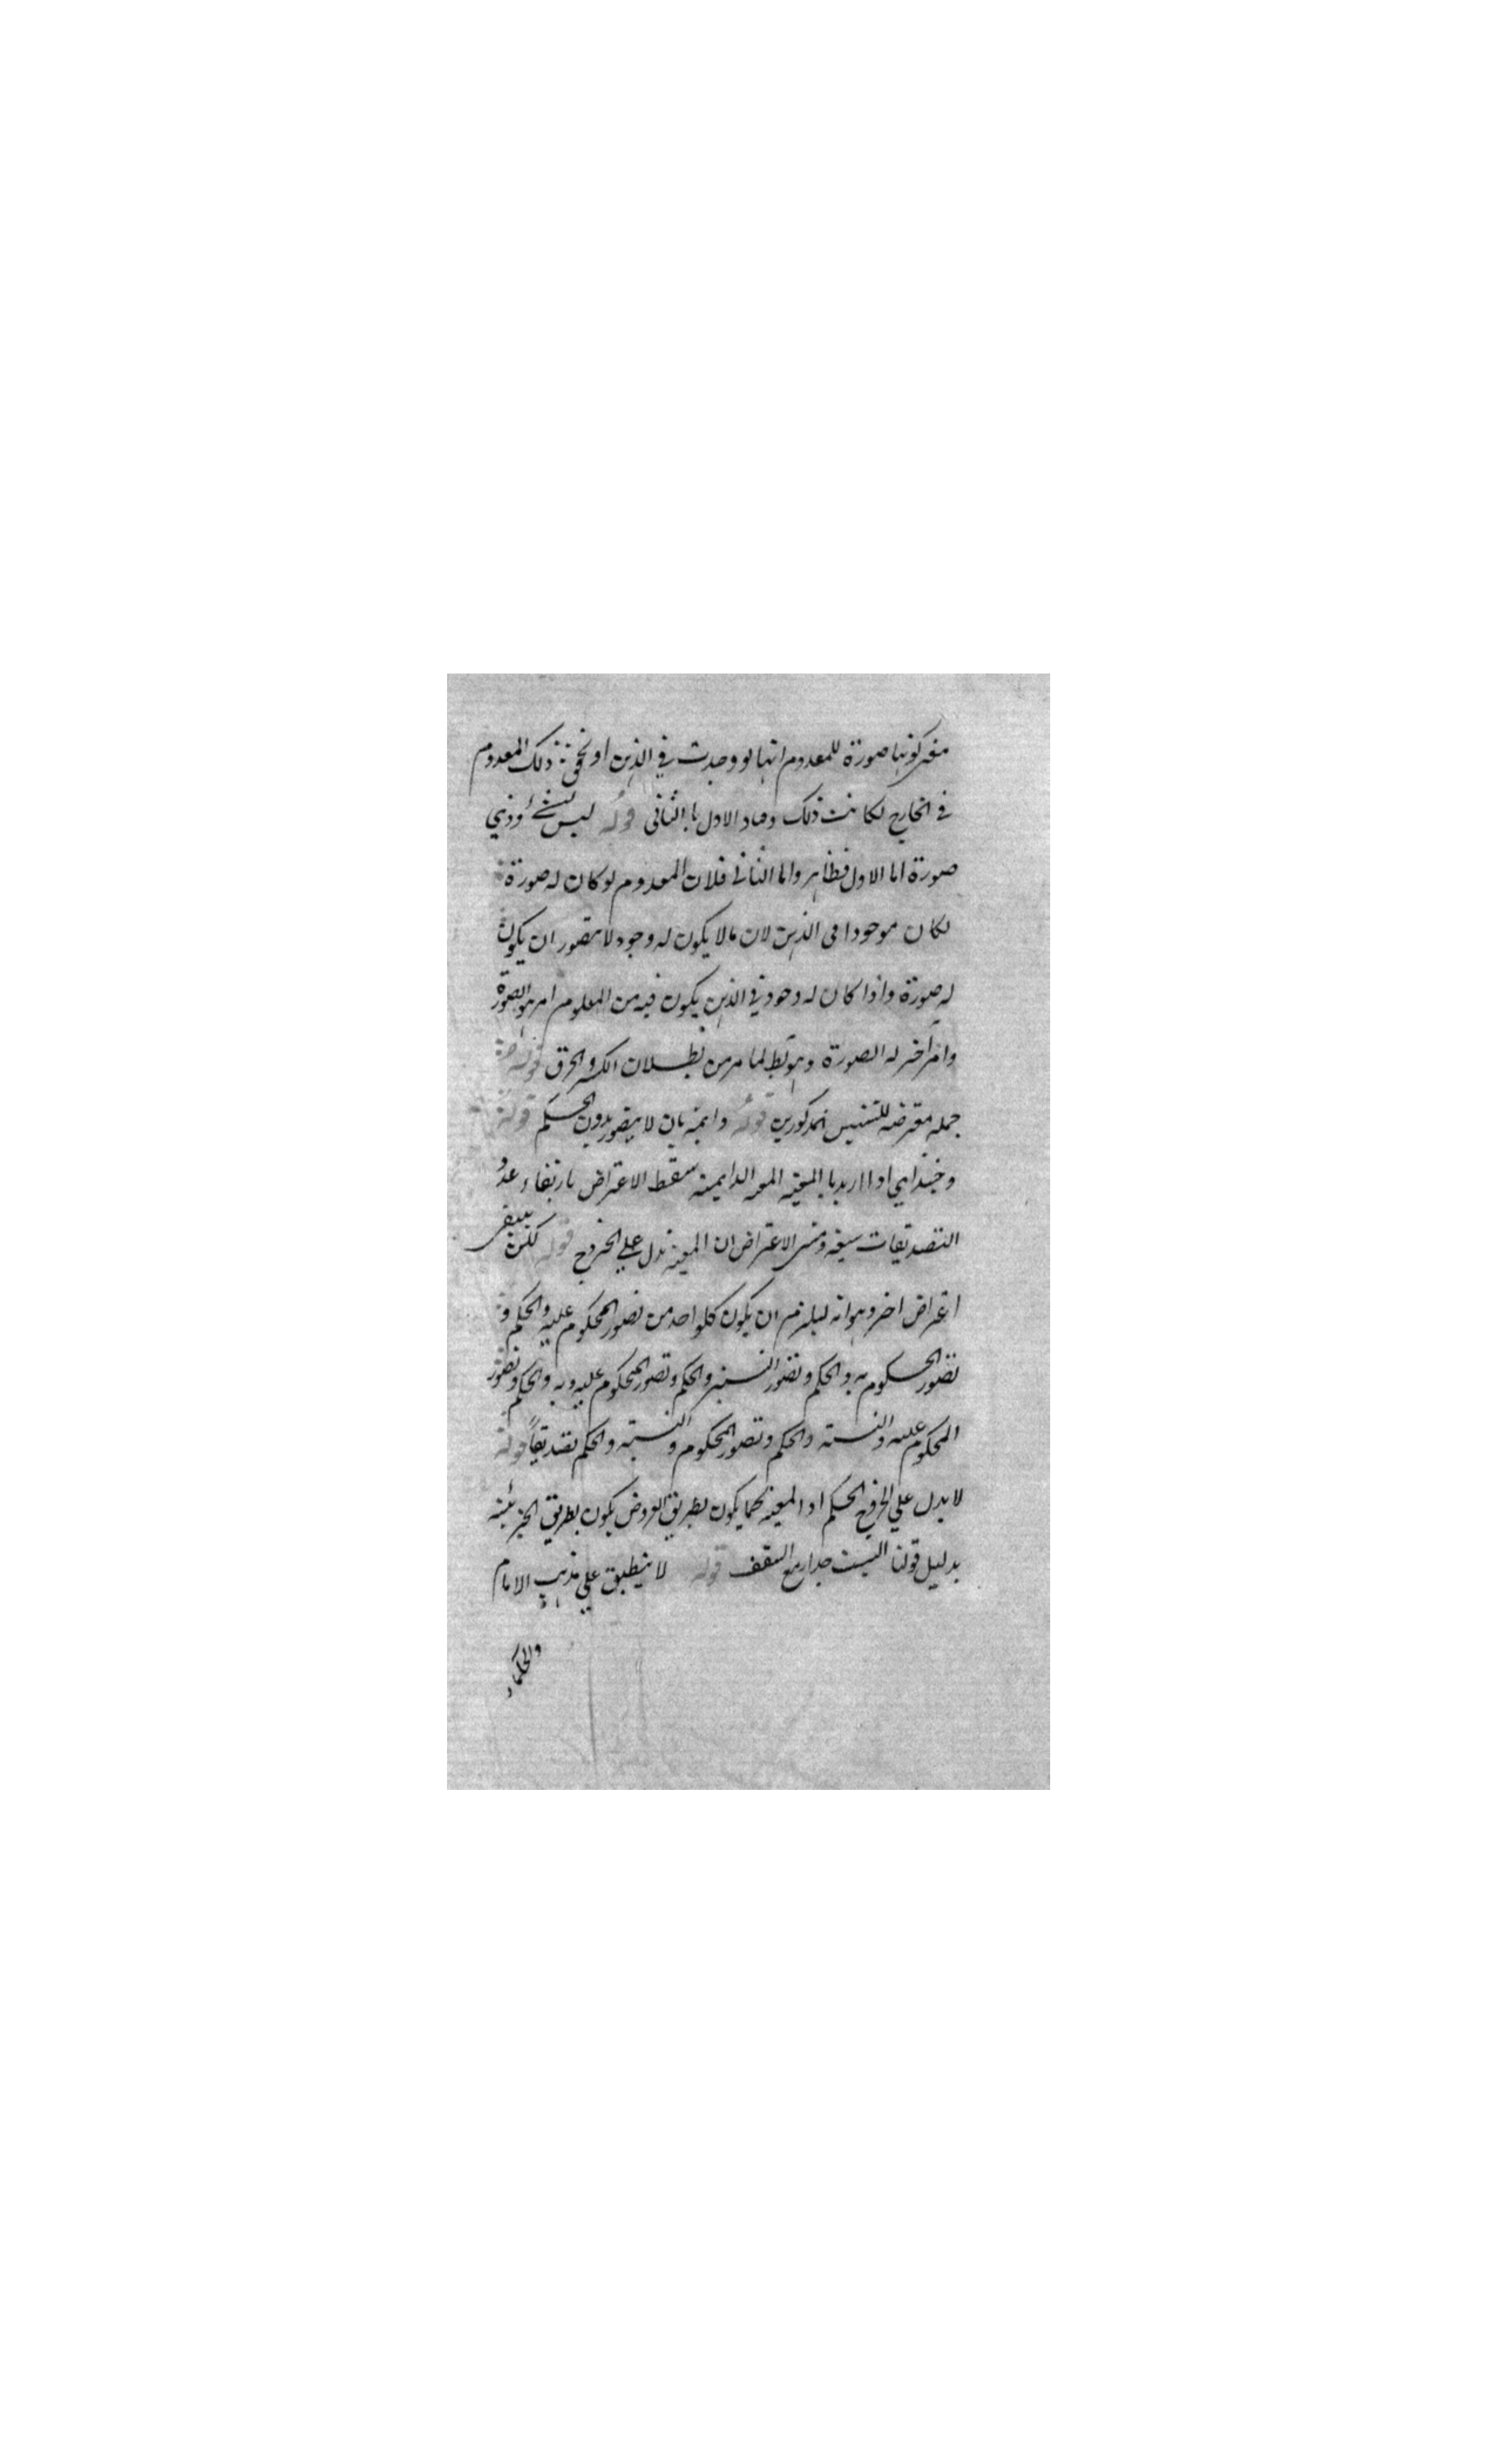 معنى كونها صورة للمعدوم انها لو وجدت في الذهن او تحقق ذلك المعدوم
في الخارج لكانت ذلك وفساد الاول با الثاني قوله ليس بشئ وذي
صورة اما الاول فظاهر واما الثاني فلان المعدوم لو كان له صورة
لكان موجودا في الذهن لان مالا يكون له وجود لا يتصور ان يكون
له صورة واذا كان له وجود في الذهن يكون فيه من المعلوم امر هو الصورة
وامر اخر له الصورة وهو بط لما مر من بطلان الكسر والخرق قوله
جملة معترضة للتنبيه المذكورين قوله دائمة بان لا يتصور بدون الحكم قوله
وحينئذ اي اذا اريد بالمعية المعية الدايمية سقط الاعتراض بارتفاع عدد
التصديقات سبعة ومبنى الاعتراض ان المعية تدل على الخروج قوله لكن يبقى
اعتراض اخر وهو انه ليلزم ان يكون كلواحد من تصور المحكوم عليه والحكم و
تصور المحكوم به والحكم وتصور النسبة والحكم وتصور المحكوم عليه وبه والحكم وتصور
المحكوم عليه والنسبة والحكم وتصور المحكوم والنسبة والحكم تصديقا قوله
لا يدل على خروج الحكم اذ المعية كما يكون بطريق العروض يكون بطريق الجزئية
بدليل قولنا البيت جدار مع السقف قوله لا ينطبق علي مذهب الامام
والحكماء